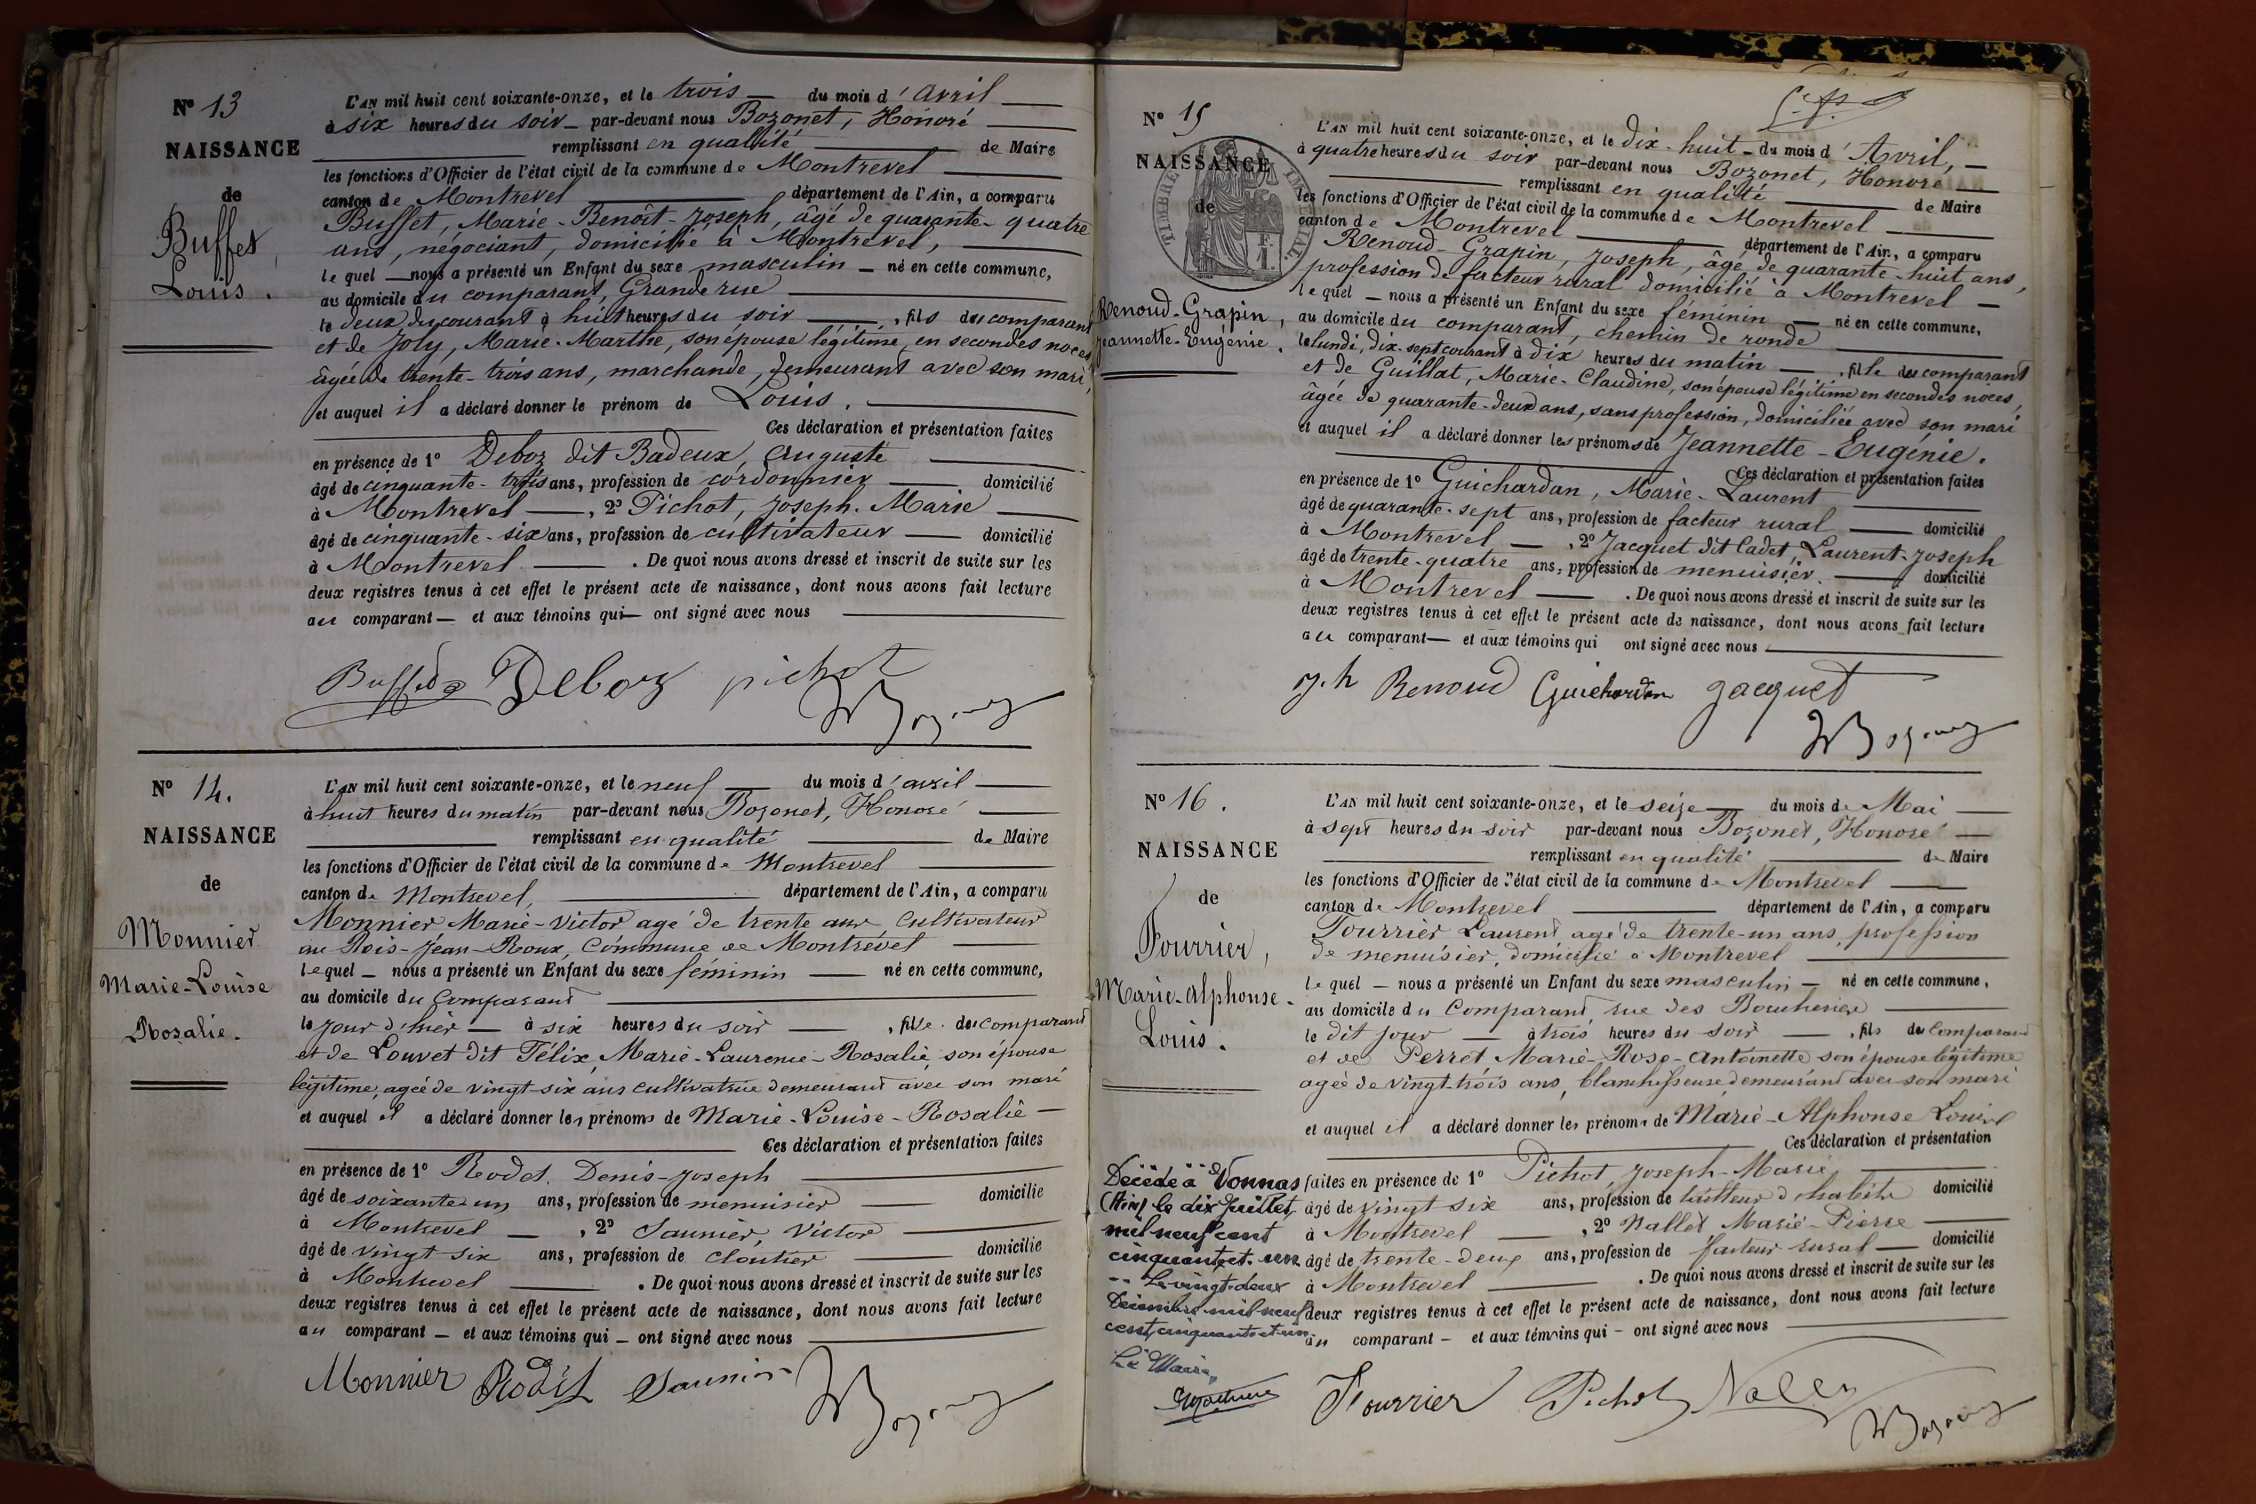 Nº 13
NAISSANCE
de
Buffet,
Louis.
L'AN mil huit cent soixante-onze, et le trois du mois d'Avril
à six heures du soir par-devant nous Bozonet, Honoré
remplissant en qualité de Maire
les fonctions d'Officier de l'état civil de la commune de Montrevel
canton de Montrevel département de l'Ain, a comparu
Buffet, Marie-Benoît-Joseph, âgé de quarante-quatre
ans, négociant, domicilié à Montrevel,
lequel nous a présenté un Enfant du sexe masculin né en cette commune,
au domicile du comparant, Grande rue
le deux du courant à huit heures du soir, fils du comparant
et de Joly, Marie-Marthe, son épouse légitime, en secondes noces,
âgée de trente-trois ans, marchande, demeurant avec son mari,
et auquel il a déclaré donner le prénom de Louis.
Ces déclaration et présentation faites
en présence de 1º Deboz dit Badeux, Auguste
âgé de cinquante-trois ans, profession de cordonnier domicilié
à Montrevel, 2º Pichot, Joseph-Marie
âgé de cinquante-six ans, profession de cultivateur domicilié
à Montrevel. De quoi nous avons dressé et inscrit de suite sur les
deux registres tenus à cet effet le présent acte de naissance, dont nous avons fait lecture
au comparant et aux témoins qui ont signé avec nous
Buffet Deboz pichot
Bozonet
Nº 14.
NAISSANCE
de
Monnier
Marie-Louise
Rosalie.
L'AN mil huit cent soixante-onze, et le neuf du mois d'avril
à huit heures du matin par-devant nous Bozonet, Honoré
remplissant en qualité de Maire
les fonctions d'Officier de l'état civil de la commune de Montrevel
canton de Montrevel, département de l'Ain, a comparu
Monnier Marie-Victor agé de trente ans, Cultivateur
au Bois-Jean-Roux, Commune de Montrevel
lequel nous a présenté un Enfant du sexe féminin né en cette commune,
au domicile du Comparant
le jour d'hier à six heures du soir, fille du comparant
et de Louvet dit Félix, Marie-Laurence-Rosalie, son épouse
légitime, agée de vingt-six ans cultivatrice demeurant avec son mari
et auquel il a déclaré donner les prénoms de Marie-Louise-Rosalie
Ces déclaration et présentation faites
en présence de 1º Rodet, Denis-Joseph
âgé de soixante un ans, profession de menuisier domicilié
à Montrevel, 2º Saunier, Victor
âgé de vingt six ans, profession de cloutier domicilié
à Montrevel. De quoi nous avons dressé et inscrit de suite sur les
deux registres tenus à cet effet le présent acte de naissance, dont nous avons fait lecture
au comparant et aux témoins qui ont signé avec nous
Monnier Rodet Saunier
Bozonet
Nº 15
NAISSANCE
de
TIMBRE IMPERIAL
1 F.
Renoud-Grapin,
Jeannette-Eugénie.
L'AN mil huit cent soixante-onze, et le dix-huit du mois d'Avril,
à quatre heures du soir par-devant nous Bozonet, Honoré
remplissant en qualité de Maire
les fonctions d'Officier de l'état civil de la commune de Montrevel
canton de Montrevel département de l'Ain, a comparu
Renoud-Grapin, Joseph, âgé de quarante-huit ans,
profession de facteur rural domicilié à Montrevel
lequel nous a présenté un Enfant du sexe féminin né en cette commune,
au domicile du comparant, chemin de ronde
le lundi, dix-sept courant à dix heures du matin, fille du comparant
et de Guillat, Marie-Claudine, son épouse légitime en secondes noces,
âgée de quarante-deux ans, sans profession, domiciliée avec son mari
et auquel il a déclaré donner les prénoms de Jeannette-Eugénie.
Ces déclaration et présentation faites
en présence de 1º Guichardan, Marie-Laurent
âgé de quarante-sept ans, profession de facteur rural domicilié
à Montrevel, 2º Jacquet dit Cadet, Laurent-Joseph
âgé de trente-quatre ans, profession de menuisier. domicilié
à Montrevel. De quoi nous avons dressé et inscrit de suite sur les
deux registres tenus à cet effet le présent acte de naissance, dont nous avons fait lecture
au comparant et aux témoins qui ont signé avec nous
j.h Renoud Guichardan Jacquet
Bozonet
Nº 16.
NAISSANCE
de
Fourrier,
Marie-Alphonse-
Louis.
L'AN mil huit cent soixante-onze, et le seize du mois de Mai
à sept heures du soir par-devant nous Bozonet, Honoré
remplissant en qualité de Maire
les fonctions d'Officier de l'état civil de la commune de Montrevel
canton de Montrevel département de l'Ain, a comparu
Fourrier Laurent agé de trente-un ans, profession
de menuisier, domicilié à Montrevel
lequel nous a présenté un Enfant du sexe masculin né en cette commune,
au domicile du Comparant rue des Boucheries
le dit jour à trois heures du soir, fils du Comparant
et de Perret Marie-Rose-Antoinette son épouse légitime
agée de vingt-trois ans, blanchisseuse demeurant avec son mari
et auquel il a déclaré donner les prénoms de Marie-Alphonse Louis
Ces déclaration et présentation
faites en présence de 1º Pichot, Joseph-Marie
âgé de vingt six ans, profession de tailleur d'habits domicilié
à Montrevel, 2º Nallet Marie-Pierre
âgé de trente-deux ans, profession de facteur rural domicilié
à Montrevel. De quoi nous avons dressé et inscrit de suite sur les
deux registres tenus à cet effet le présent acte de naissance, dont nous avons fait lecture
au comparant et aux témoins qui ont signé avec nous
Décédé à Vonnas
(Ain) le dix Juillet
mil neuf cent
cinquante et un
Le vingt-deux
Décembre mil neuf
cent cinquante et un.
Le Maire,
Fourrier Pichot Nallet
Bozonet